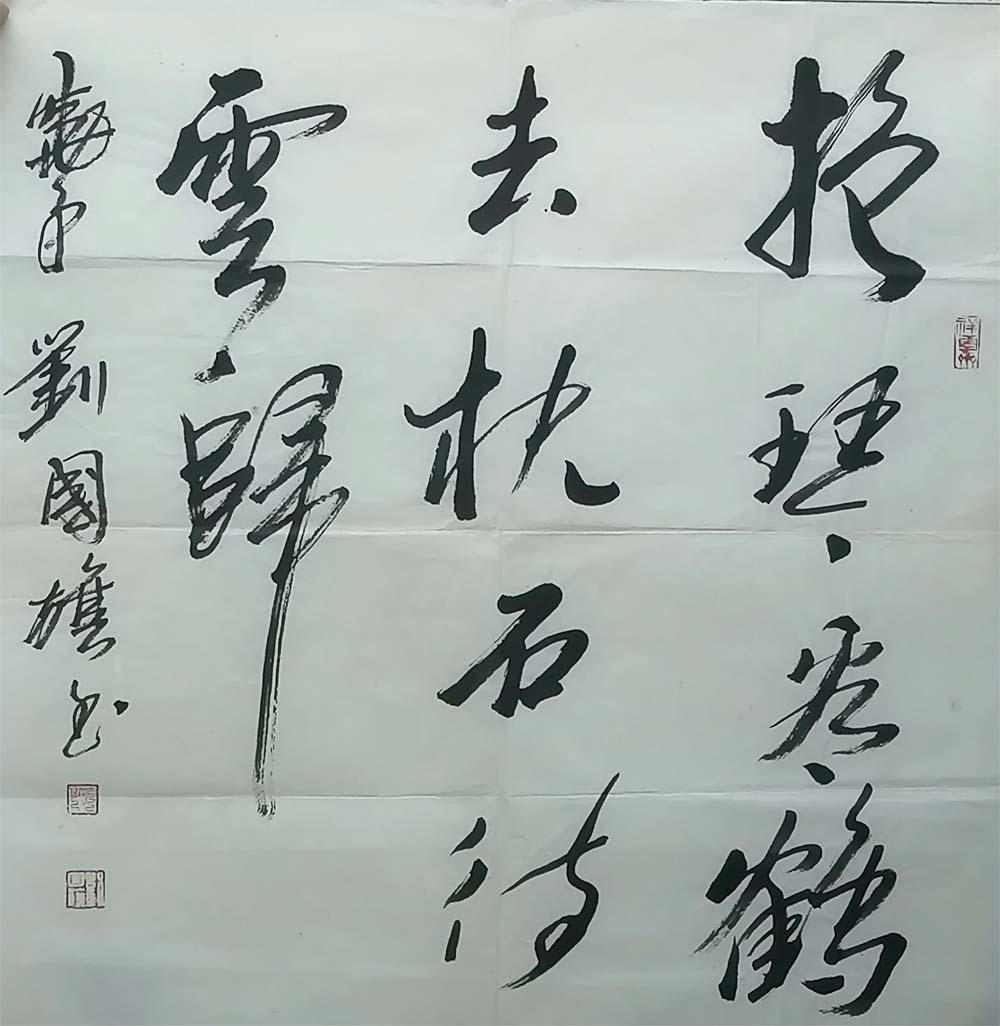 抱琴看鶴
去枕石待
雲歸
劉國旗书